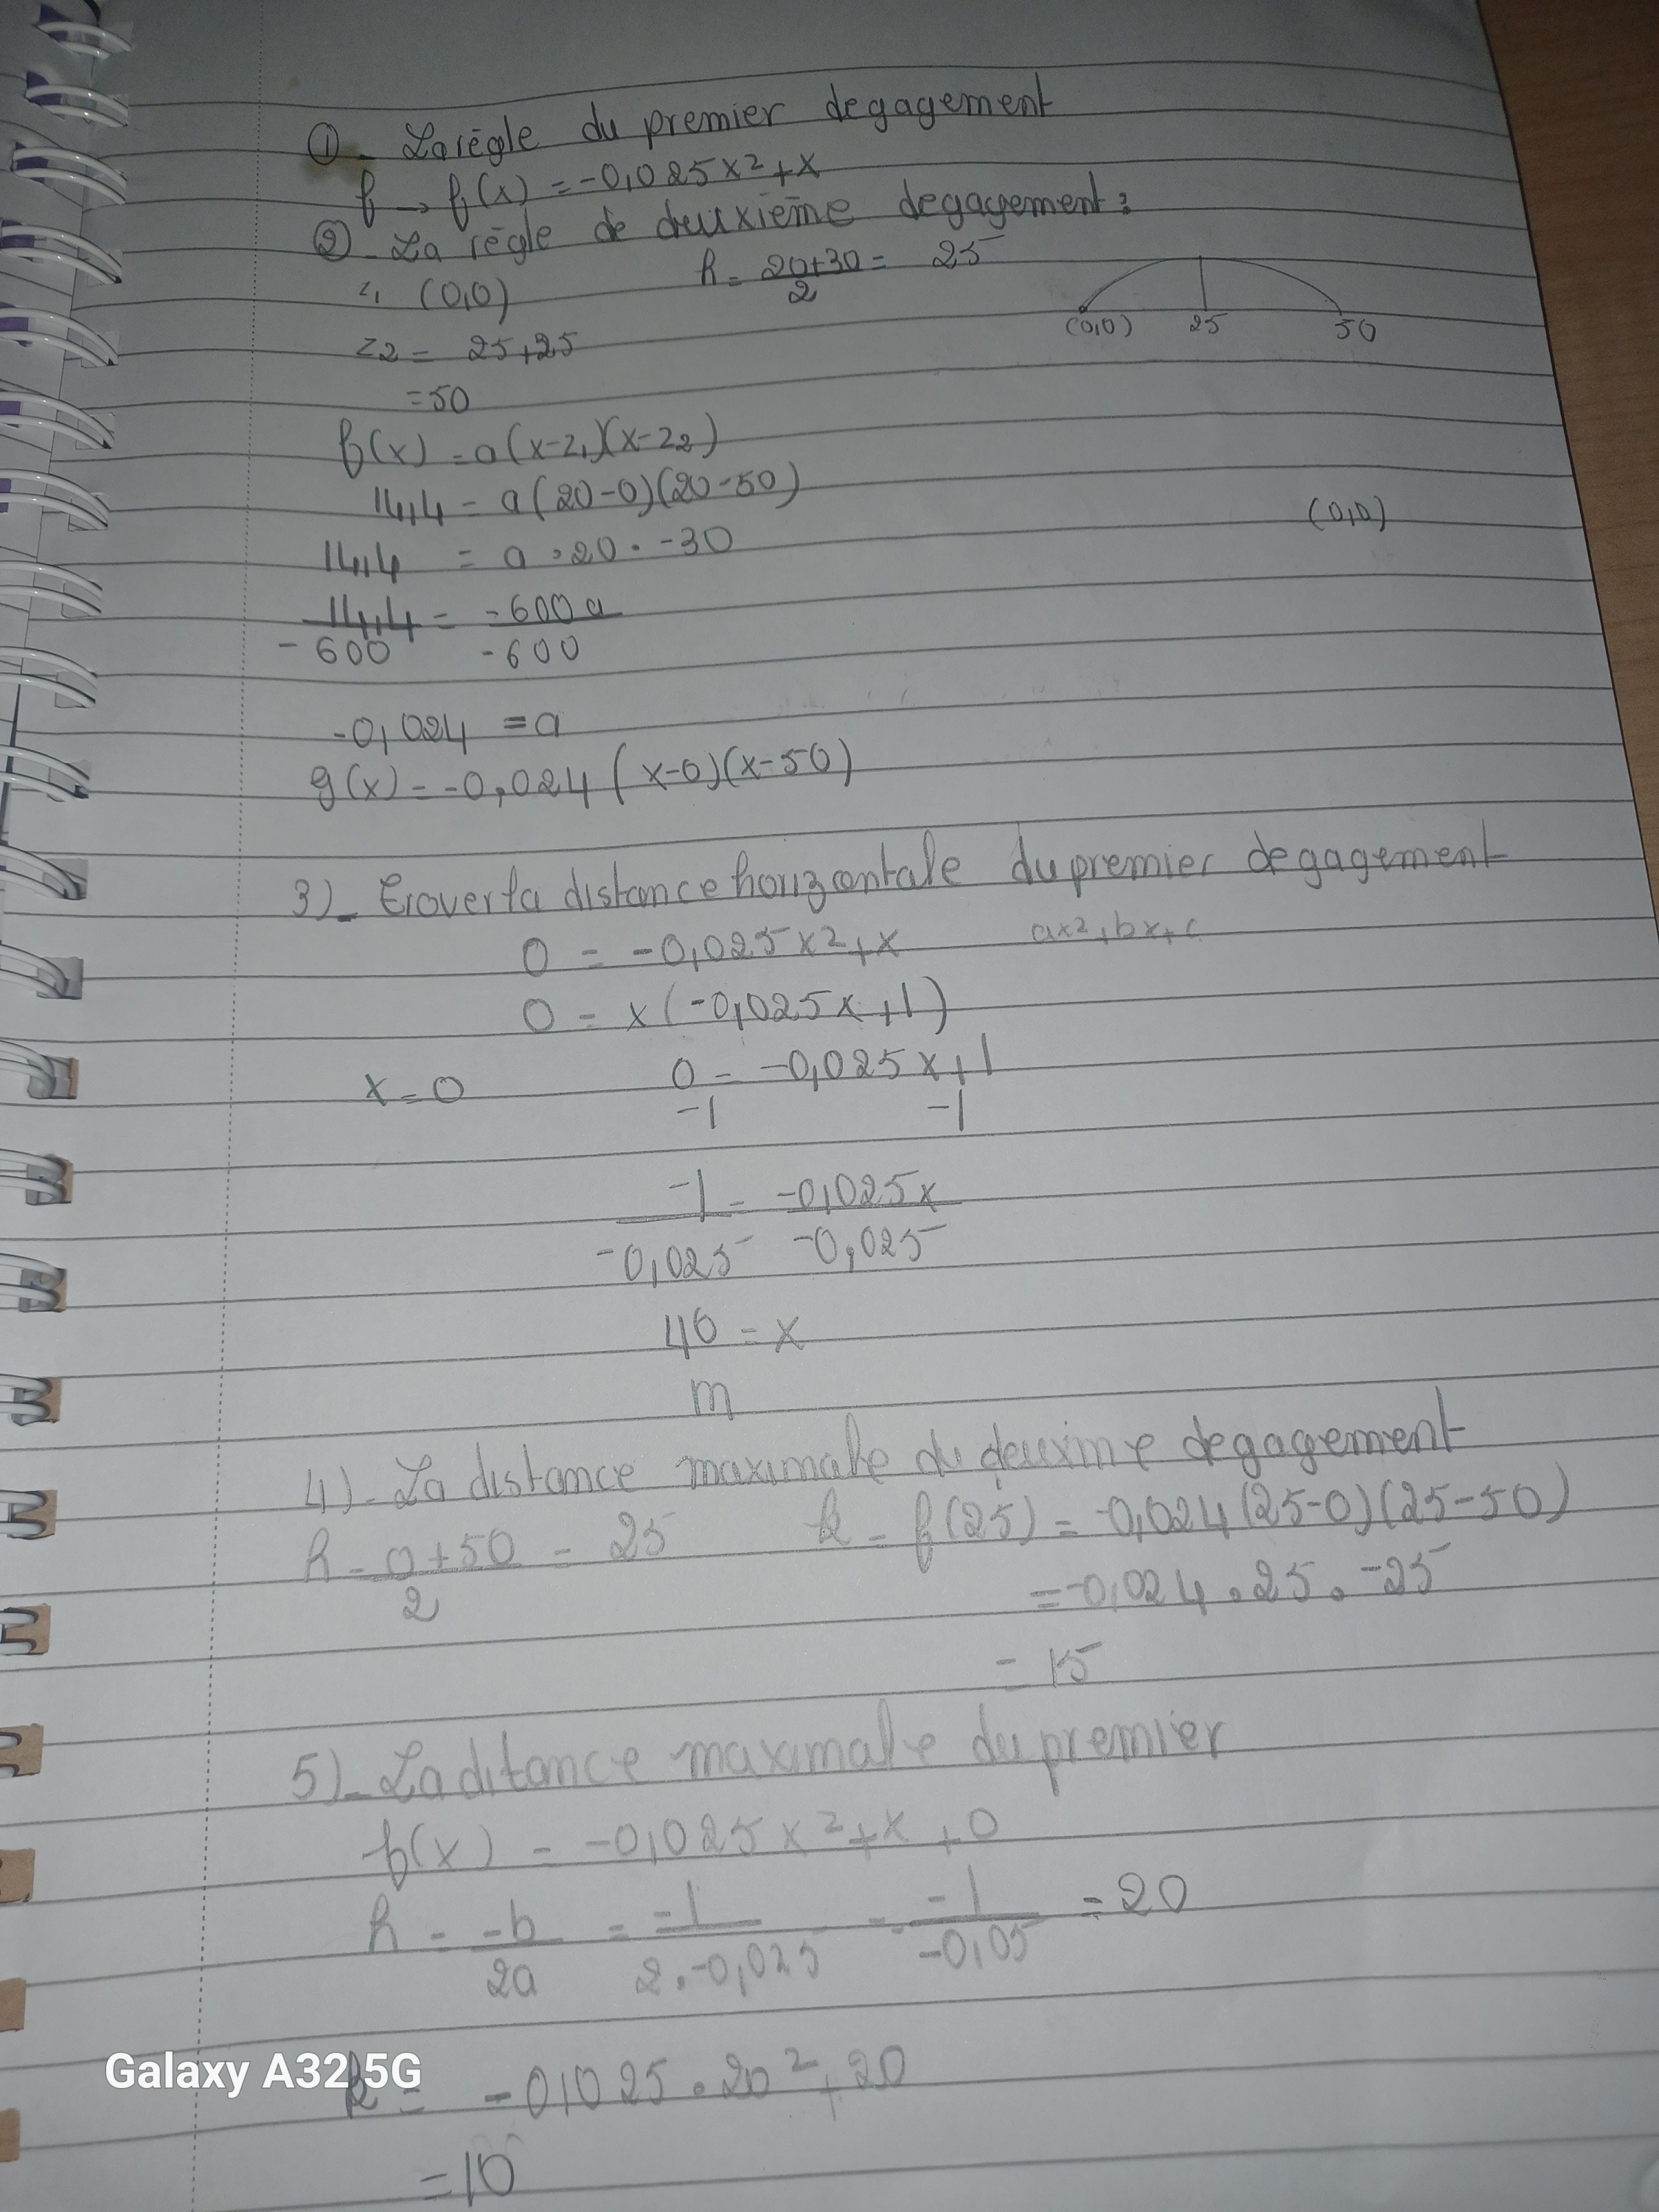 ① - La règle du premier degagement
f → f(x) = -0,025x² + x
② - La règle de deuxième degagement :
z₁ (0,0) h = 20+30/2 = 25
z2 = 25+25
(0,0) 25 50
= 50
f(x) = a(x-z₁)(x-z2)
14,4 = a(20-0)(20-50)
(0,0)
14,4 = a · 20 · -30
14,4/-600 = -600a/-600
-0,024 = a
g(x) = -0,024 (x-0)(x-50)
3) - Trover la distance horizontale du premier degagement
0 = -0,025x² + x ax²+bx+c
0 = x(-0,025x+1)
x = 0 0 = -0,025x+1
-1 -1
-1/-0,025 = -0,025x/-0,025
40 = x
m
4) - La distance maximale du deuxime degagement
h = 0+50/2 = 25 k = f(25) = -0,024(25-0)(25-50)
= -0,024 · 25 · -25
= 15
5) - La ditance maximale du premier
f(x) = -0,025x² + x + 0
h = -b/2a = -1/2·-0,025 = -1/-0,05 = 20
k = -0,025 · 20² + 20
= 10
Galaxy A32 5G